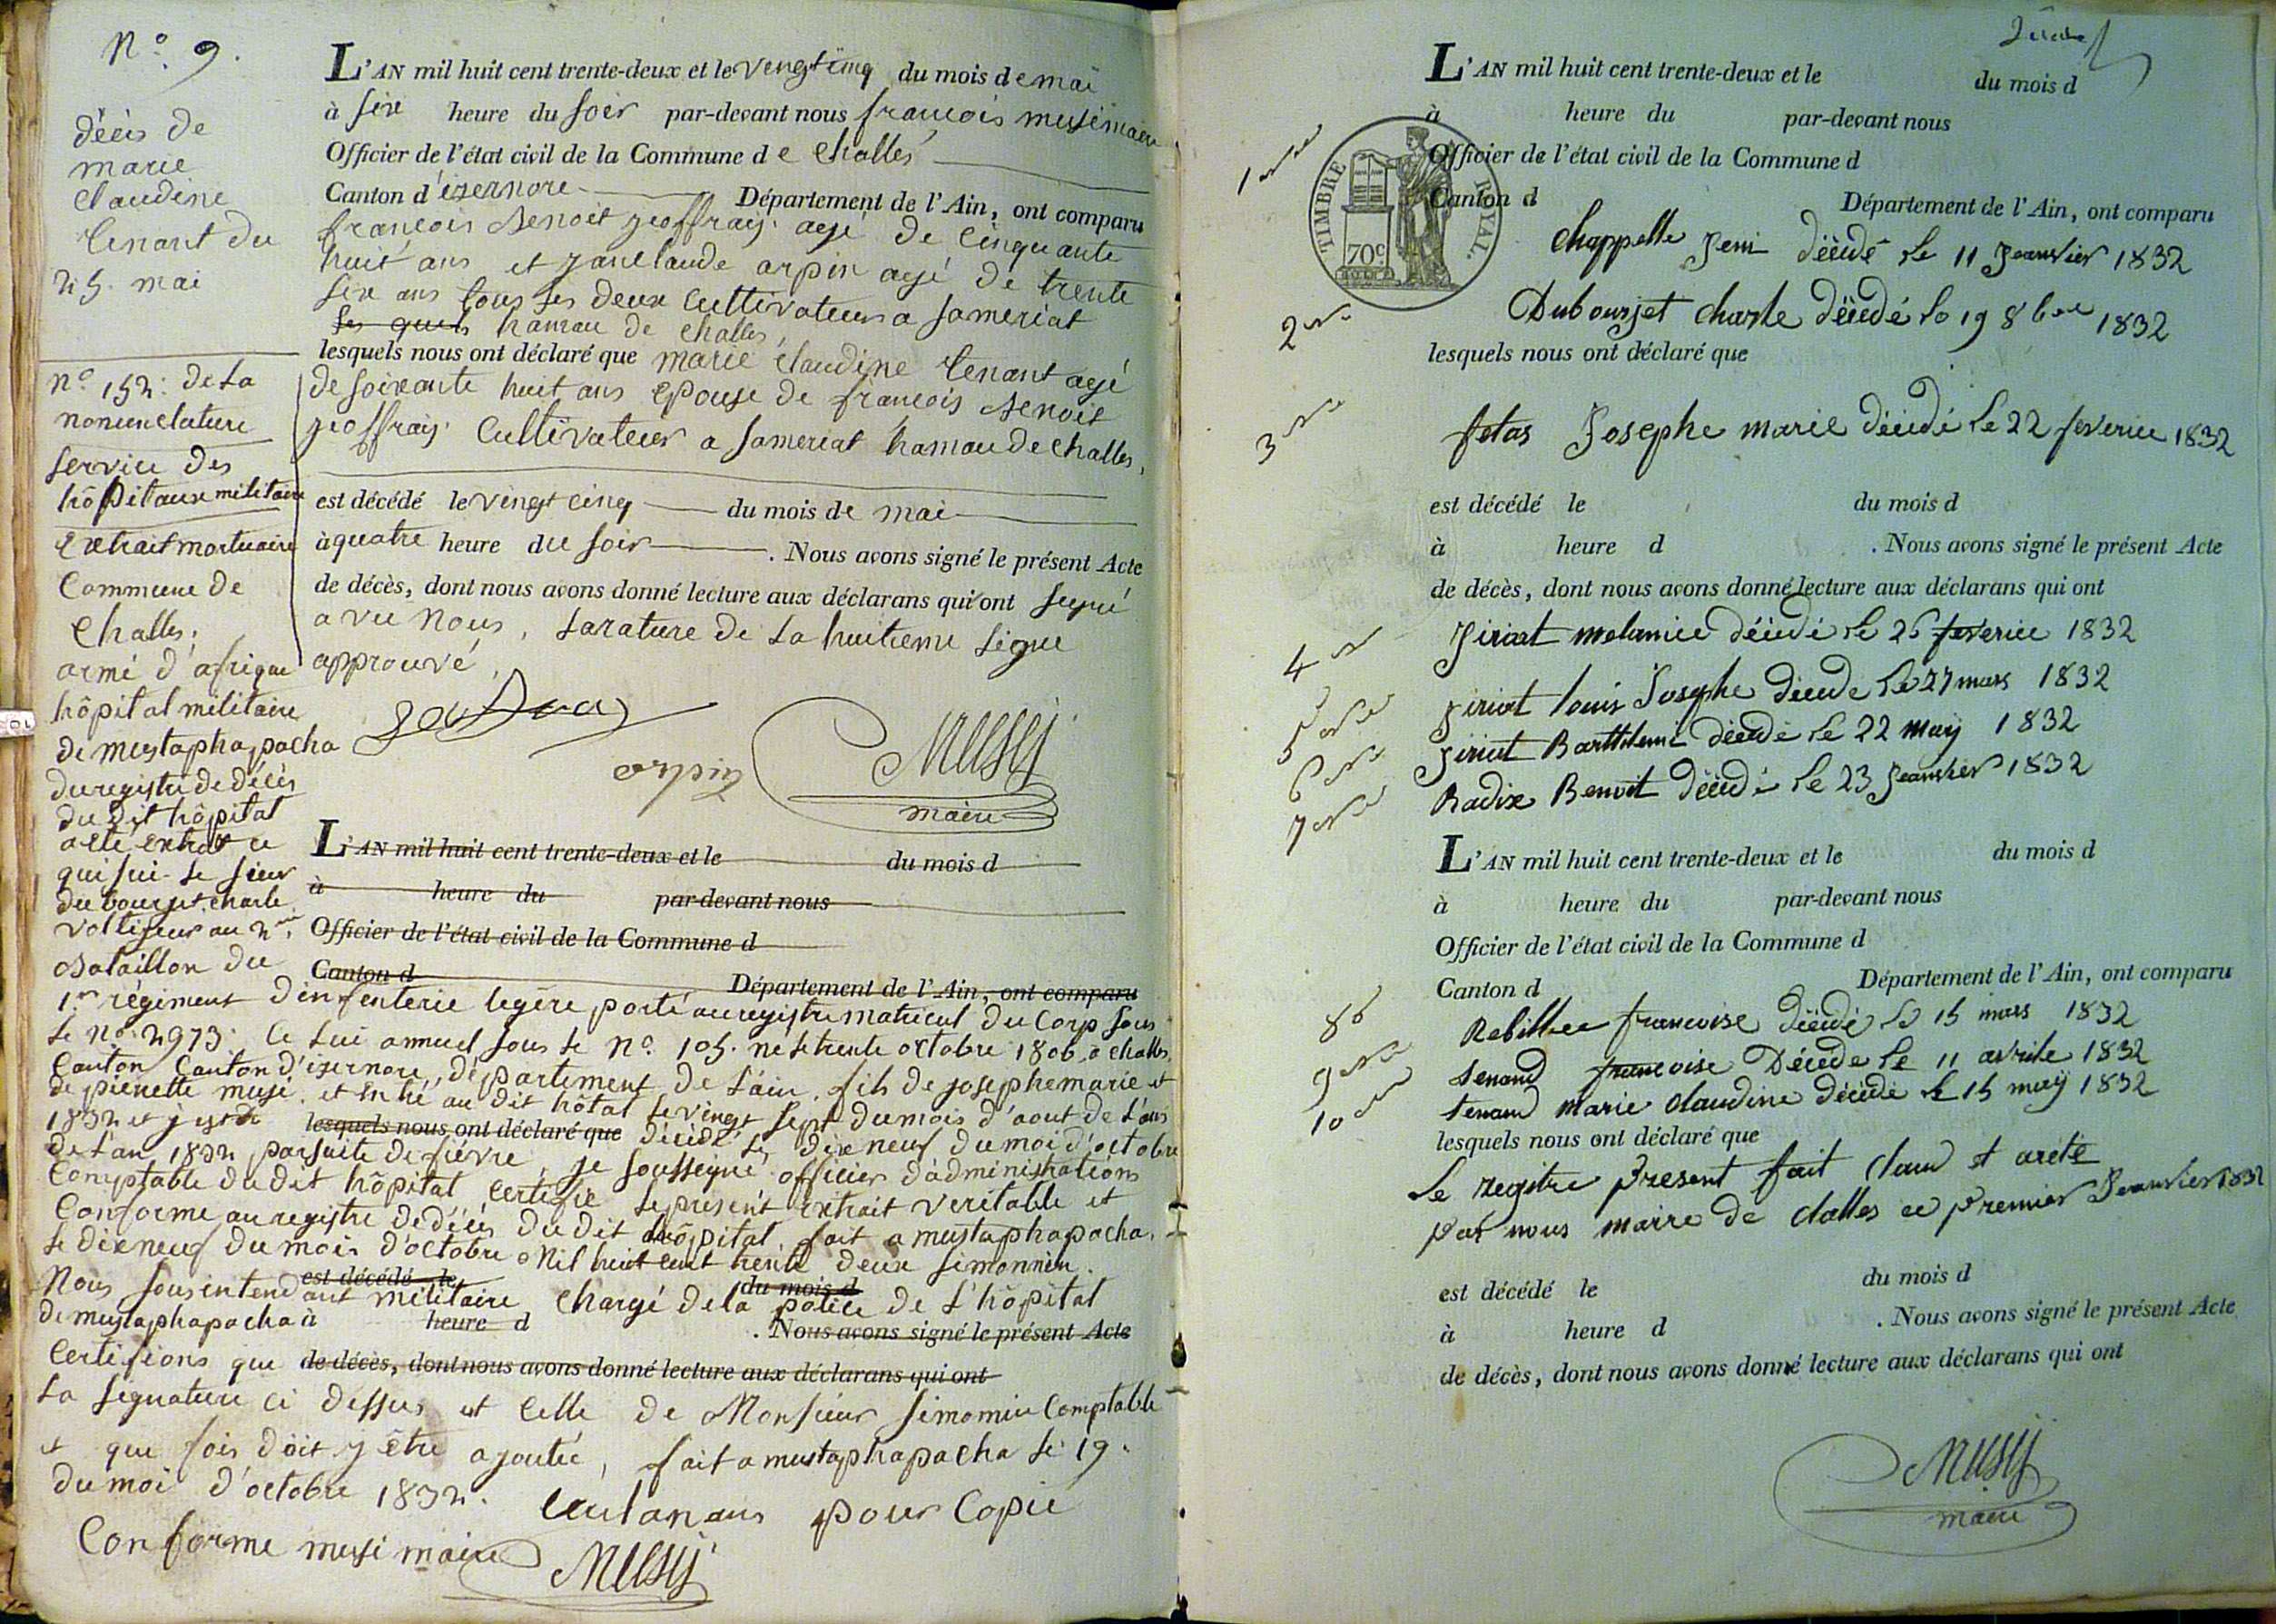 N.o 9.
décés de
marie
Claudine
tenant du
25. mai
L'AN mil huit cent trente-deux et le vengt cinq du mois de mai
à six heure du soir par-devant nous francois musi maire
Officier de l'état civil de la Commune de Challes
Canton d'izernore Département de l'Ain, ont comparu
francois Benoit joffray agé de Cinquante
huit ans et janclaude arpin agé de trente
six ans tous les deux Cultivateurs a Sameriat
les quels hamau de Challes,
lesquels nous ont déclaré que marie Claudine tenant agé
de soixante huit ans epouse de francois Benoit
joffray Cultivateur a Sameriat hamau de Challes,
est décédé le vingt cinq du mois de mai
à quatre heure du soir . Nous avons signé le présent Acte
de décès, dont nous avons donné lecture aux déclarans qui ont segné
avec Nous, Larature de la huitieme Ligne
approuvé
arpin
MUSY
maire
n.o 152: de La
nomenclature
Service des
hôpitaux militaire
Extrait mortuaire
Commune de
Challes.
armé d'afrique
hôpital militaire
de mustaphapacha
du registre de décés
du dit hôpital
a eté extrait ce
qui sui le sieur
dubourjet charle
voltigeur au 2me
Bataillon du
L'AN mil huit cent trente-deux et le du mois d
à heure du par-devant nous
Officier de l'état civil de la Commune d
Canton d Département de l'Ain, ont comparu
1er régiment d'infenterie legère porté au registre matricul du Corp sous
le n.o 2973. Ce lui annuel sous le N.o 105. ne le trente octobre 1806 a Challes,
Canton Canton d'izernore, département de l'ain, fils de josephe marie et
de pierrette musi. et entré au dit hôtal le vingt sept du mois d'aout de l'ans
1832 et y est lesquels nous ont déclaré que décédé le dix neuf du moi d'octobre
de l'an 1832 par suite de fièvre, je soussigné officier d'administrations
Comptable du dit hôpital certifie le présent Extrait veritable et
Conforme au registre de décés du dit hôpital, fait a mustaphapacha.
le dix neuf du mois d'octobre Mil huit cent trente deux Simonnin.
est décédé le du mois d
Nous sous intendant militaire chargé de la police de l'hôpital
de mustaphapacha à heure d . Nous avons signé le présent Acte
Certifions que de décès, dont nous avons donné lecture aux déclarans qui ont
La signature ci dessus est celle de Monsieur Simonnin Comptable
et que fois doit y être ajoutée, fait a mustaphapacha le 19.
du moi d'octobre 1832. pour Copie
Conforme musi maire MUSY
L'AN mil huit cent trente-deux et le du mois d
à heure du par-devant nous
Officier de l'état civil de la Commune d
Canton d Département de l'Ain, ont comparu
TIMBRE ROYAL.
70c
1 Chappelle Jeni décidé le 11 Jeanvier 1832
2 Dubourjet charle décidé le 19 8bre 1832
lesquels nous ont déclaré que
3 fetas Josephe marie décidé le 22 feverie 1832
est décédé le du mois d
à heure d . Nous avons signé le présent Acte
de décès, dont nous avons donné lecture aux déclarans qui ont
4 Jiriat melanie décidé le 26 feverie 1832
5 Jiriat louis Josephe décidé le 27 mars 1832
6 Jiriat Barthelemi décidé le 22 may 1832
7 Radix Benoit décidé le 23 Jeanvier 1832
L'AN mil huit cent trente-deux et le du mois d
à heure du par-devant nous
Officier de l'état civil de la Commune d
Canton d Département de l'Ain, ont comparu
8 Rebillee francoise décidé le 15 mars 1832
9 tenand francoise Décéde le 11 avrile 1832
10 tenand marie claudine décidé le 15 may 1832
lesquels nous ont déclaré que
Le registre present fait claud et areté
par nous maire de challes ce premier Jeanvier 1832
est décédé le du mois d
à heure d . Nous avons signé le présent Acte
de décès, dont nous avons donné lecture aux déclarans qui ont
MUSY
maire